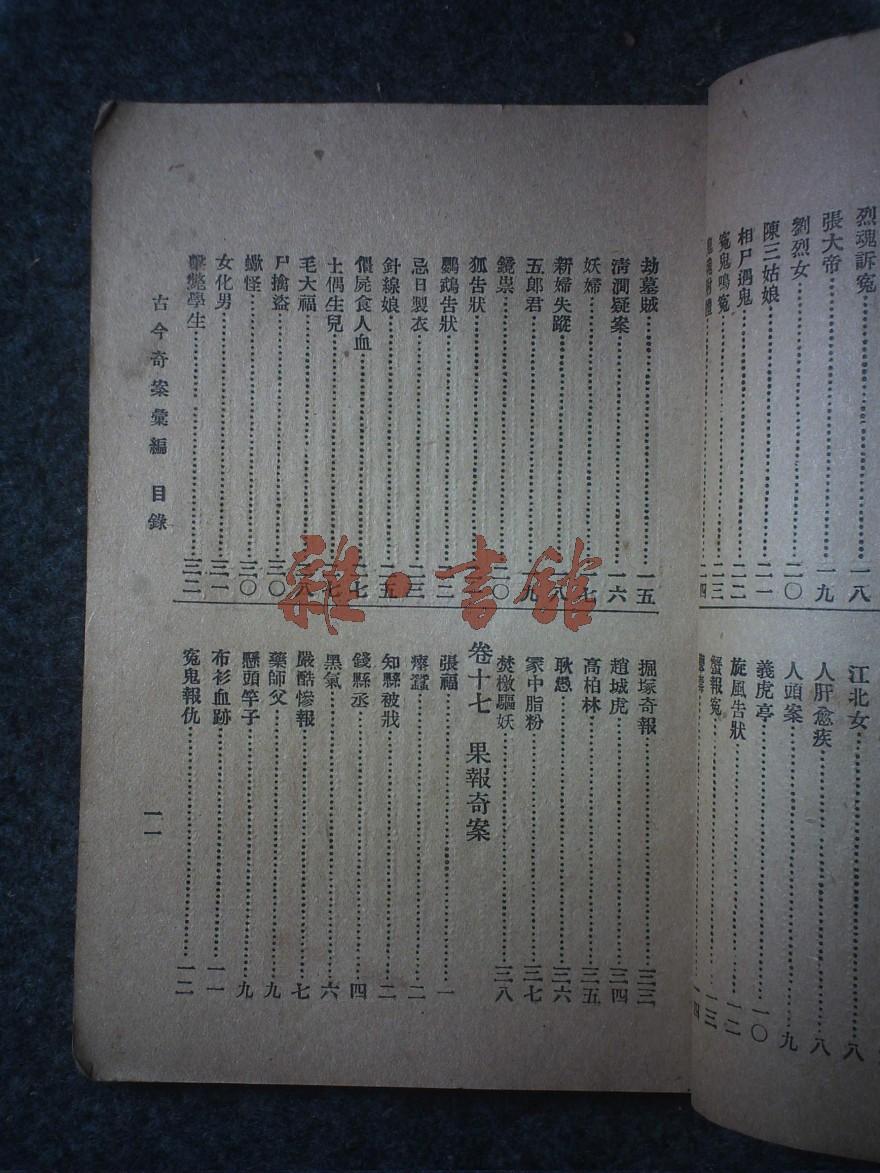 烈魂訴冤……一八
張大帝……一九
劉烈女……二〇
陳三姑娘……二一
相尸遇鬼……二二
冤鬼鳴冤……二三
江北女……八
人肝愈疾……八
人頭案……九
義虎亭……一〇
旋風告狀……一二
蟹報冤……一三
劫墓賊……一五
清澗疑案……一六
妖婦……七
新婦失蹤……八
五郎君……九
鏡祟……二〇
狐告狀……
鸚鵡告狀……二二
忌日製衣……二三
針線娘……二五
僵屍食人血……二七
土偶生兒……七
毛大福……二八
尸擒盜……三〇
蠍怪……三〇
女化男……三一
擊斃學生……三二
掘塚奇報……三三
趙城虎……三四
高柏林……三五
耿愚……三六
冢中脂粉……三七
焚檄驅妖……三八
卷十七 果報奇案
張福……一
瘞蠶……二
知縣被戕……二
錢縣丞……四
黑氣……六
嚴酷慘報……七
藥師父……九
懸頭竿子……九
布衫血跡……一一
冤鬼報仇……一二
古今奇案彙編 目錄
一一
雜·書館